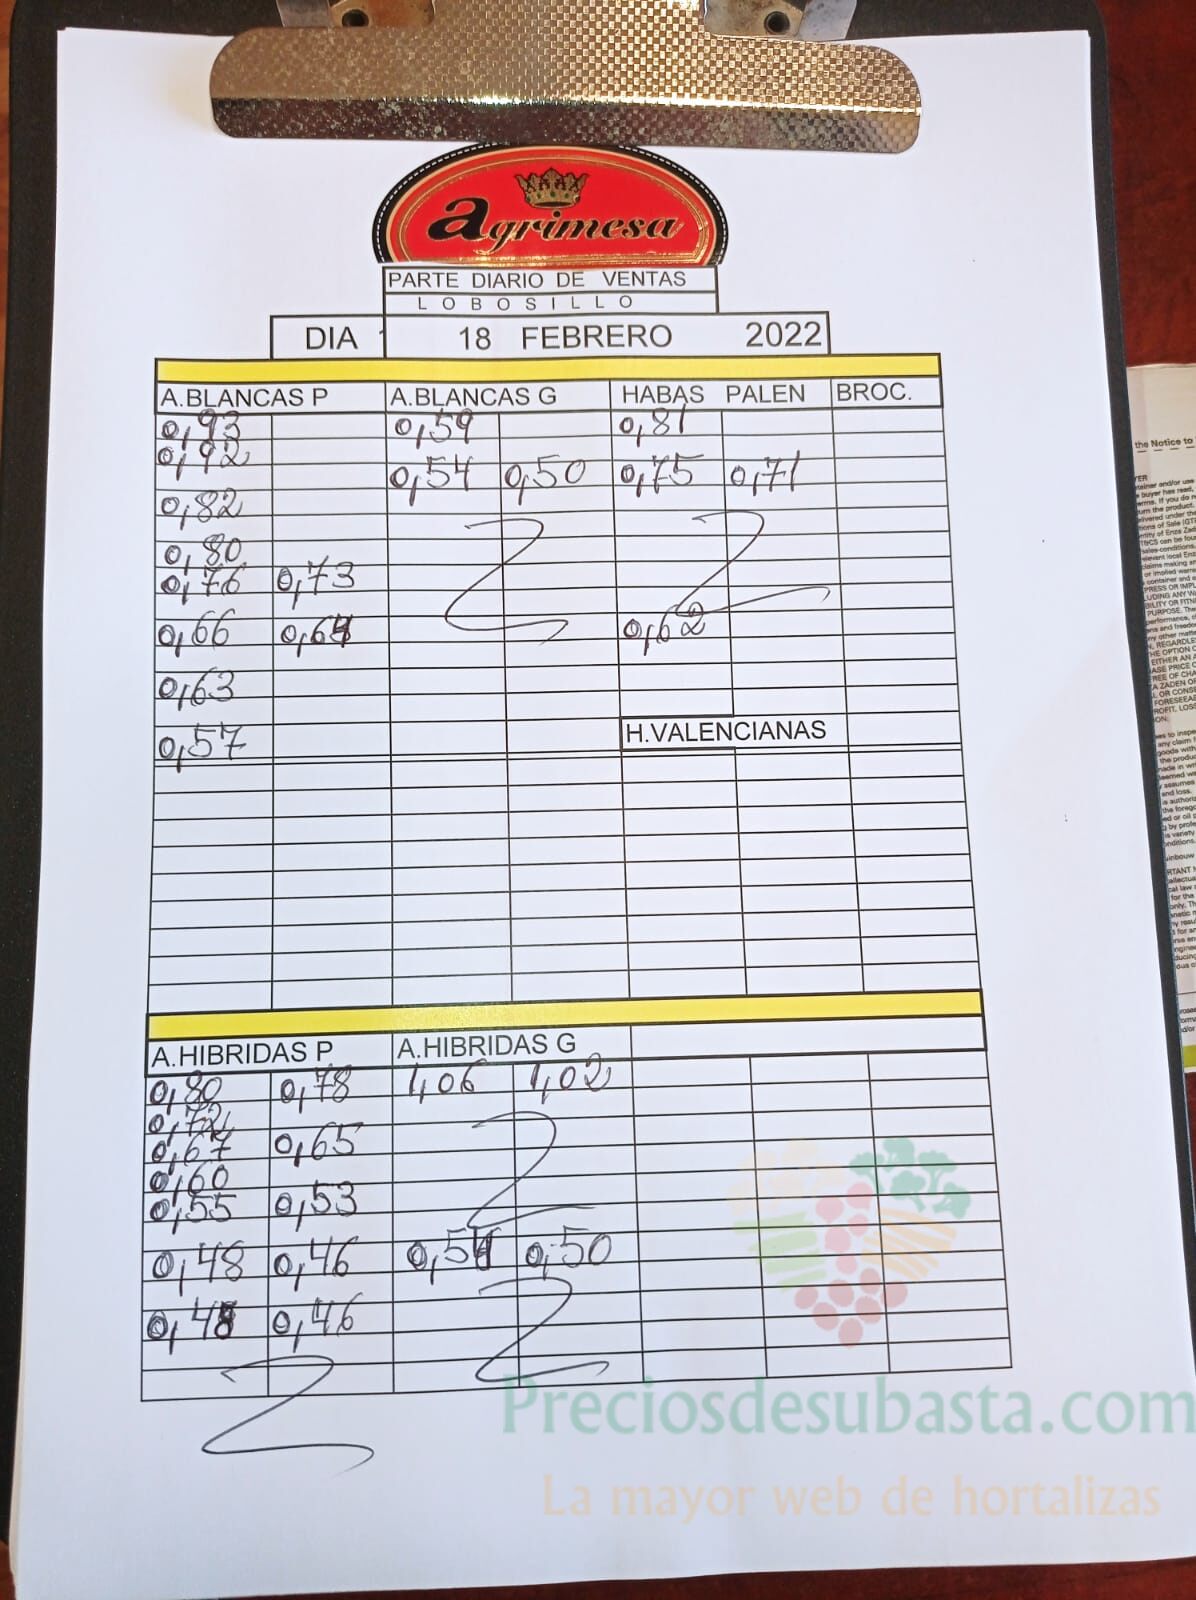 agrimesa
PARTE DIARIO DE VENTAS
LOBOSILLO
DIA 18 FEBRERO 2022
A.BLANCAS P A.BLANCAS G HABAS PALEN BROC.
0,93 0,59 0,81
0,92
0,54 0,50 0,75 0,71
0,82
0,80
0,76 0,73
0,66 0,64 0,62
0,63
0,57 H.VALENCIANAS
A.HIBRIDAS P A.HIBRIDAS G
0,80 0,78 1,06 1,02
0,72
0,67 0,65
0,60
0,55 0,53
0,48 0,46 0,54 0,50
0,46
Preciosdesubasta.com
La mayor web de hortalizas
the Notice to